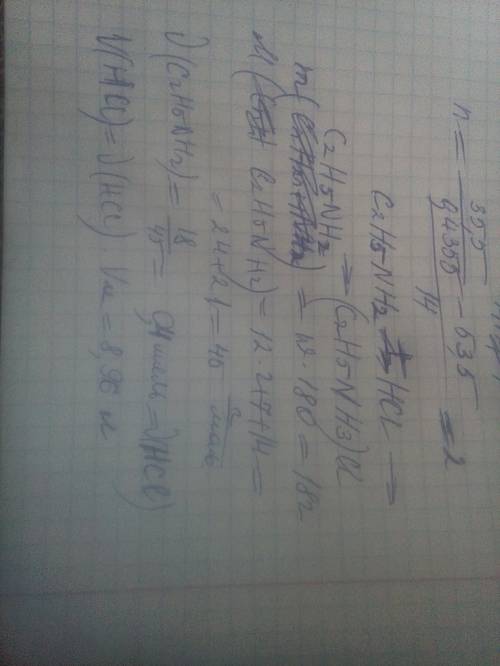 n = 35,5 / 0,4355 - 63,5 / 14 = 2
C2H5NH2 + HCl →
→ (C2H5NH3)Cl
m(C2H5NH2) = w · 180 = 18г
M(C2H5NH2) = 12 · 2 + 7 + 14 =
= 24 + 21 = 45 г/моль
ν(C2H5NH2) = 18/45 = 0,4 моль = ν(HCl)
V(HCl) = ν(HCl) · Vм = 8,96 л